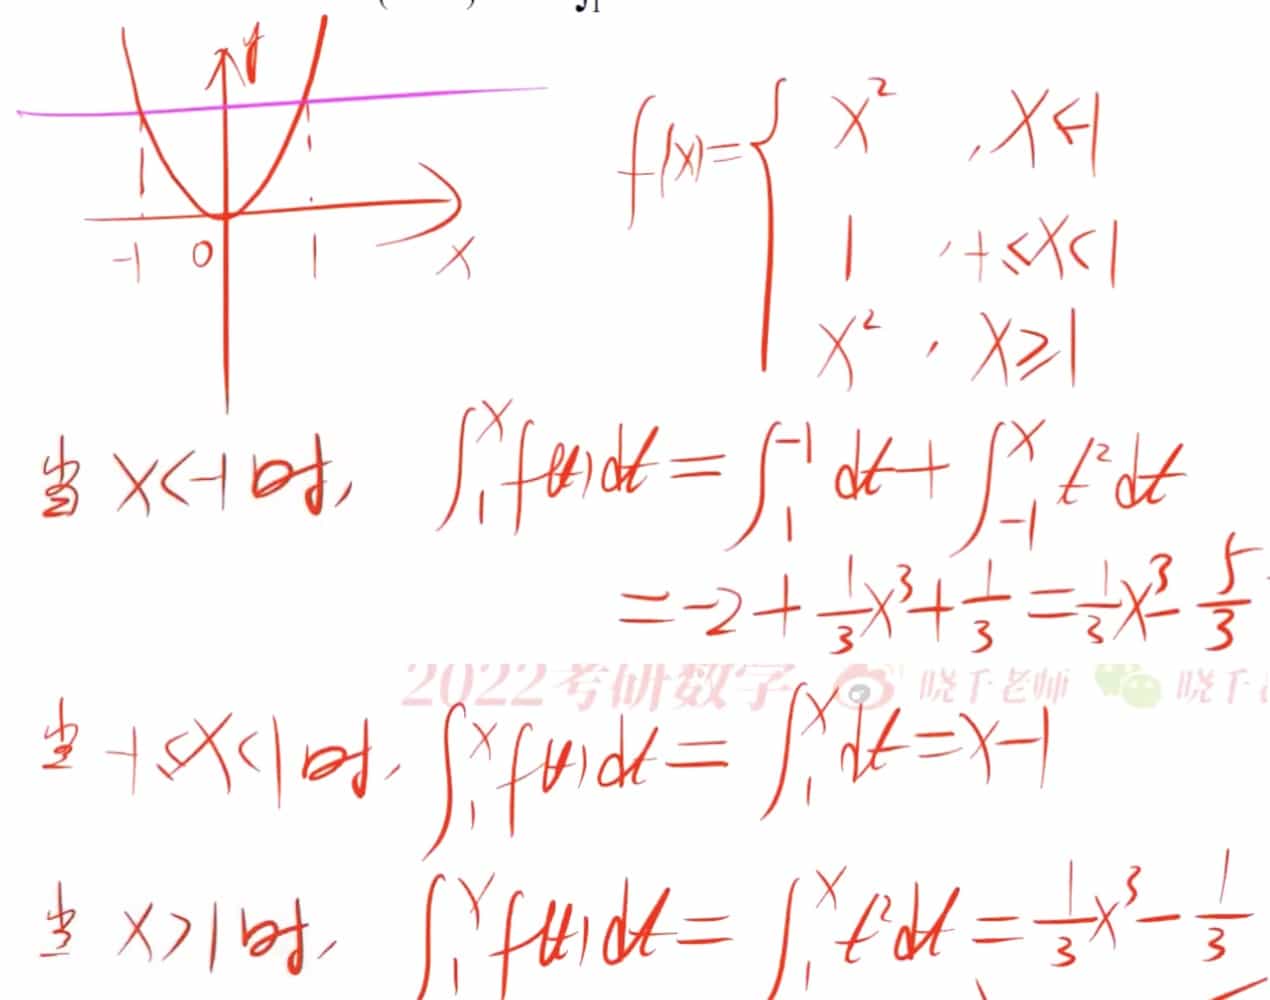 y
-1 0 1 x
f(x)= { x² , x<-1
1 , -1≤x<1
x² , x≥1
当 x<-1时, ∫₁ˣ f(t)dt = ∫₁⁻¹ dt + ∫₋₁ˣ t²dt
= -2 + 1/3 x³ + 1/3 = 1/3 x³ - 5/3
2022考研数学 晓千老师 晓千
当 -1≤x<1时, ∫₁ˣ f(t)dt = ∫₁ˣ dt = x-1
当 x>1时, ∫₁ˣ f(t)dt = ∫₁ˣ t²dt = 1/3 x³ - 1/3